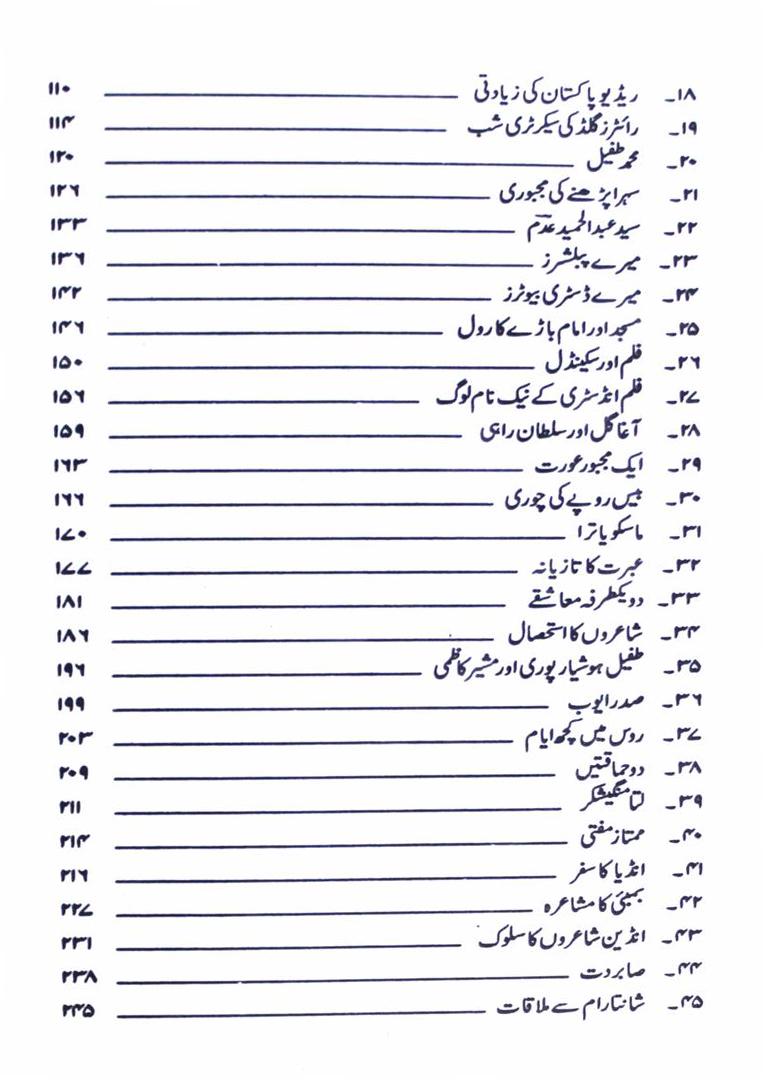 ۱۸۔ ریڈیو پاکستان کی زیادتی ۱۱۰
۱۹۔ رائٹرز گلڈ کی سیکرٹری شب ۱۱۴
۲۰۔ محمد طفیل ۱۲۰
۲۱۔ سہرا پڑھنے کی مجبوری ۱۲۶
۲۲۔ سید عبدالحمید عدم ۱۳۳
۲۳۔ میرے پبلشرز ۱۳۶
۲۴۔ میرے ڈسٹری بیوٹرز ۱۴۲
۲۵۔ مسجد اور امام باڑے کا رول ۱۴۶
۲۶۔ فلم اور سکینڈل ۱۵۰
۲۷۔ فلم انڈسٹری کے نیک نام لوگ ۱۵۶
۲۸۔ آغا گل اور سلطان راہی ۱۵۹
۲۹۔ ایک مجبور عورت ۱۶۳
۳۰۔ بیس روپے کی چوری ۱۶۶
۳۱۔ ماسکو یاترا ۱۷۰
۳۲۔ عبرت کا تازیانہ ۱۷۷
۳۳۔ دو یکطرفہ معاشقے ۱۸۱
۳۴۔ شاعروں کا استحصال ۱۸۶
۳۵۔ طفیل ہوشیار پوری اور مشیر کاظمی ۱۹۶
۳۶۔ صدر ایوب ۱۹۹
۳۷۔ روس میں کچھ ایام ۲۰۳
۳۸۔ دو حماقتیں ۲۰۹
۳۹۔ لتا منگیشکر ۲۱۱
۴۰۔ ممتاز مفتی ۲۱۴
۴۱۔ انڈیا کا سفر ۲۱۶
۴۲۔ بمبئی کا مشاعرہ ۲۲۷
۴۳۔ انڈین شاعروں کا سلوک ۲۳۱
۴۴۔ صابر دت ۲۳۸
۴۵۔ شانتا رام سے ملاقات ۲۴۵